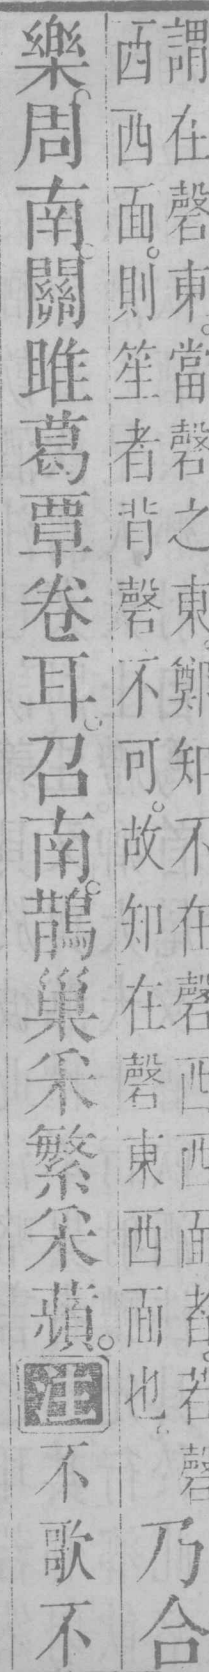 謂在磬東。當磬之東。鄭知不在磬西西面者。若磬
西西面。則笙者背磬不可。故知在磬東西面也。乃合
樂周南。關雎葛覃卷耳。召南。鵲巢采繁采蘋。注不歌不